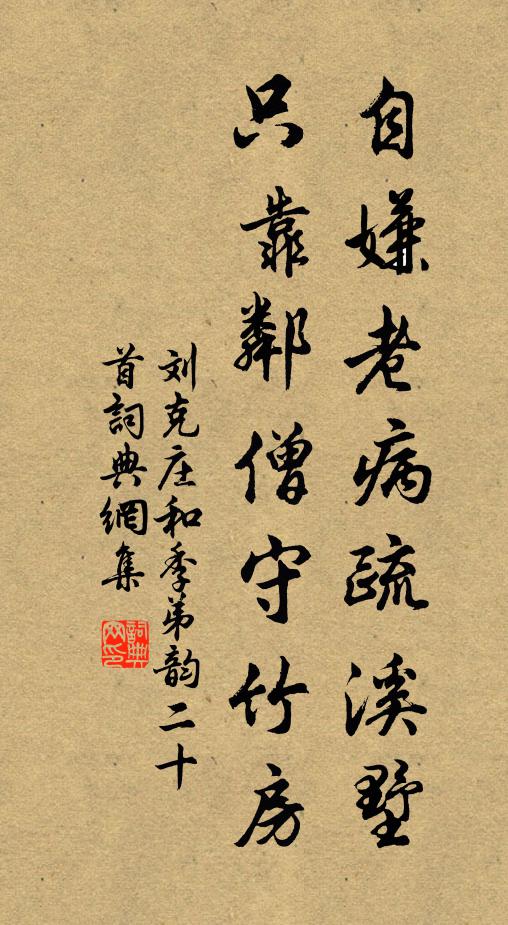 自嫌老病疏溪墅
只靠鄰僧守竹房
刘克庄和季弟韵二十
首詞典網集
詞典網印